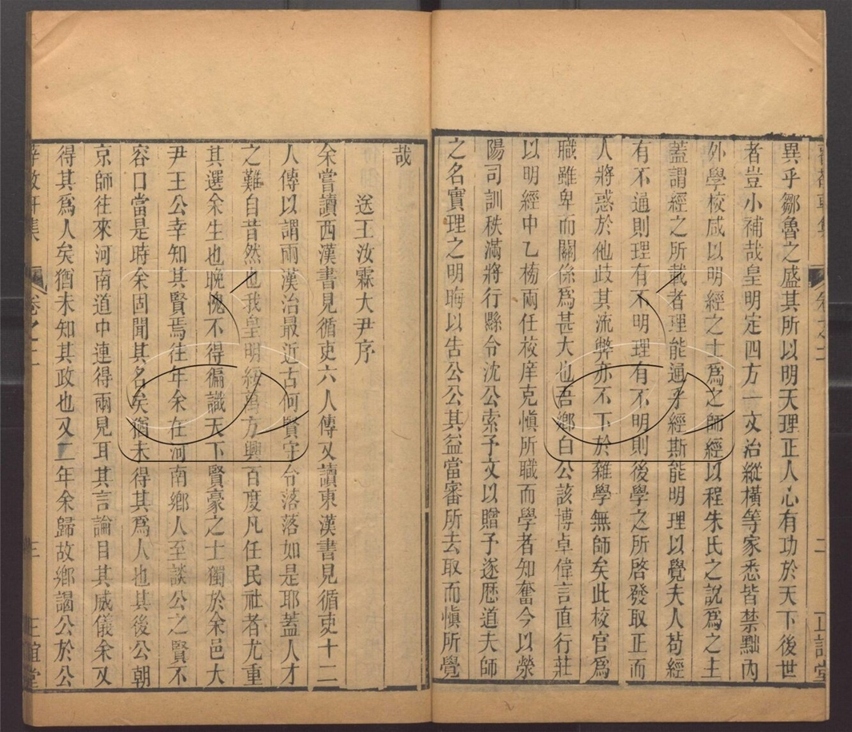 異乎鄒魯之盛其所以明天理正人心有功於天下後世
者豈小補哉皇明定四方一文治縱橫等家悉皆禁黜內
外學校咸以明經之士爲之師經以程朱氏之說爲之主
蓋謂經之所載者理能通乎經斯能明理以覺夫人苟經
有不通則理有不明理有不明則後學之所啓發取正而
人將惑於他歧其流弊亦不下於雜學無師矣此校官爲
職雖卑而關係爲甚大也吾鄉白公該博卓偉言直行莊
以明經中乙榜兩任校庠克愼所職而學者知奮今以滎
陽司訓秩滿將行縣令沈公索予文以贈予遂歷道夫師
之名實理之明晦以告公公其益當審所去取而愼所覺
哉
送王汝霖大尹序
余嘗讀西漢書見循吏六人傳又讀東漢書見循吏十二
人傳以謂兩漢治最近古何賢宰台落落如是耶蓋人才
之難自昔然也我皇明經爲方興百度凡任民社者尤重
其選余生也晚愧不得徧識天下賢豪之士獨於余邑大
尹王公幸知其賢焉往年余在河南鄉人至談公之賢不
容口當是時余固聞其名矣猶未得其爲人也其後公朝
京師往來河南道中連得兩見耳其言論目其威儀余又
得其爲人矣猶未知其政也又二年余歸故鄉謁公於公
卷之二
三
正誼堂
二
正誼堂